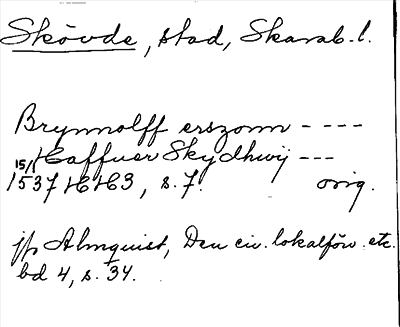 Skövde, stad, Skarab. l.
Brynnolff erszonn - - - -
Haffuer Skydhwij - - -
15/1 1537 HH3, s. 7. orig.
jfr Almquist, Den civ. lokalförv. etc.
bd 4, s. 34.